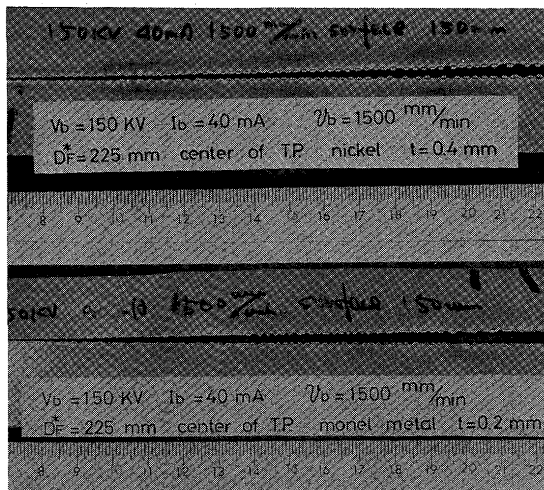 150KV 40mA 1500 mm/min surface 150mm
Vb=150 KV Ib=40 mA Vb=1500 mm/min
D*F=225 mm center of T.P. nickel t=0.4 mm
8 9 10 11 12 13 14 15 16 17 18 19 20 21 22
1500 mm/min surface 150mm
Vb=150 KV Ib=40 mA Vb=1500 mm/min
D*F=225 mm center of T.P. monel metal t=0.2 mm
8 9 10 11 12 13 14 15 16 17 18 19 20 21 22